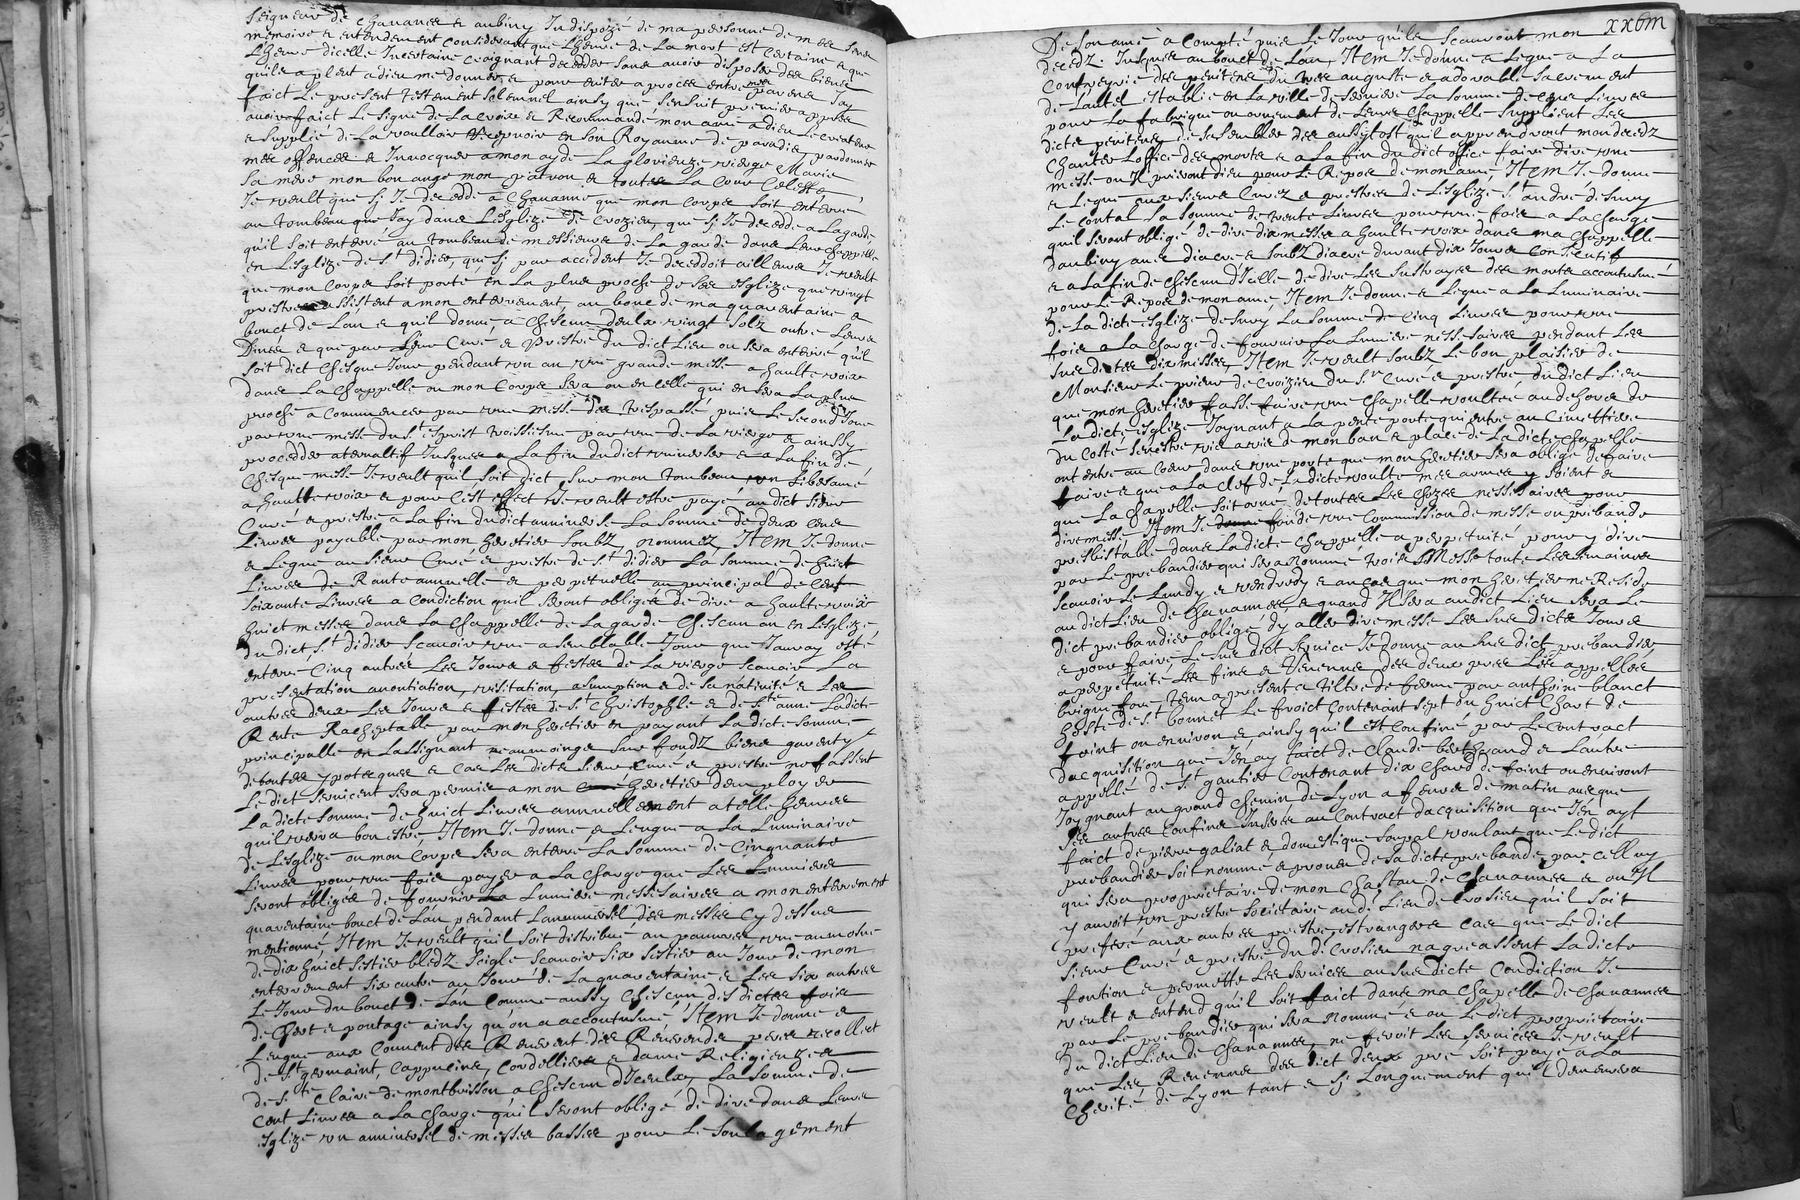 Seigneur de Chavannes & aubiny Indispozé de ma personne de mes sens
memoire & entendement Considerant que Lheure de La mort est Certaine & que
Lheure dicelle Incertaine Craignant decedder sans avoir disposer des biens
quil a pleut a dieu me donner & pour eviter a proces entre mes parens Jay
faict Le present testement solemnel ainsy que sensuit premier appres
avoir faict Le signe de La croix & Recommande mon ame a dieu Le createur
& supplié de La voulloir Recepvoir en son Royaume de paradis pardonner
mes offences & Invocquer a mon ayde La glorieuze vierge Marie
sa mere mon bon ange mon patron & toutte La Cour Celeste
Je veult que si Je decedde a Chavanne que mon corps soit enterré
au tombeau que Jay dans Lesglize de Crozieu, que si Je decedde a Lagarde
quil soit enterré au tombeau de messieurs de La garde dans Leur chappelle
en Lesglize de st didier, que si par accident Je deceddoit ailleurs Je veult
que mon Corps soit porté en La plus proche de ses esglize que vingt
prestre assistent a mon enterrement au bouc de ma quarantaine &
bouct de Lan & quil donné a Chescun deulx vingt solz outre Leurs
Dinés & que par Leur Curé & Prestre du dict Lieu ou sera enterré quil
soit dict Chesque Jour pendant un an une grande messe a haulte voix
dans La Chappelle ou mon Corps sera ou en celle qui en sera La plus
proche a Commencer par une messe des trespassé, puis Le second Jour
par une messe du st esprit troissiesme par une de La vierge & ainssy
procedder aternatif Jusques a La fin dudict universer & a La fin de
Chesque messe Je veult quil soit dict sur mon tombeau un Liberame
a haulte voix & pour Cest effect Je veult estre payé au dict sieur
Curé & prestre a La fin dudict anniverse La somme de deux Cens
Livres payable par mon heretier soubz nommez, Item Je donne
& Legue au sieur Curé & prestre de st didier La somme de huict
Livres de Rante annuelle & perpetuelle au principal de Cent
soixante Livres a Condiction quil seront obligés de dire a haulte voix
huict messes dans La Chappelle de La garde Chescun an en Lesglize
du dict st didier scavoir une a semblable Jour que Jauray esté
enterre Cinq autres Les Jours & festes de La vierge scavoir La
presentation anontiation, visitation, asumption & de sa nativité & Les
autres deux Les Jours & festes de st Christophle & de ste anne Ladicte
Rente Racheptable par mon heretier en payant La dicte somme
principalle en Lassignant neaumoings sur fondz biens garenty
de touttes ypoteques & cas Les dicts sieurs Curé & prestre ne fassent
Le dict servicent sera permis a mon heretier demployer
La dicte somme de huict Livres annuellement a telle heuvres
quil verra bon estre, Item Je donne & Leugue a La Luminaire
de Lesglize ou mon Corps sera enterre La somme de Cinquante
Livres pour une fois payer a La charge que Les Luminiers
seront obligés de fournir La Lumiere nesessaires a mon enterrement
quarantaine bouct de Lan pendant Lanniversel des messes Cy dessus
mentionné Item Je veult quil soit distribué au pauvres une aumosne
de dix huict sestier bledz seigle scavoir six sestier au Jour de mon
enterrement six autre au Jour de La quarentaine & Les six autres
Le Jour du bouct de Lan Comme aussy Chescun desdictes fois
de & potage ainsy quon a accoutusmé Item Je donne &
Leugue aux Couvent des Reverends peres recollect
de st germaint, Cappucins, Cordelliers & dame Religieuzes
de ste Claire de montbrisson a Chescun diceulx La somme de
Cent Livres a La Charge quil seront obligé de dire dans Leurs
esglize un anniversel de messes basses pour Le soulagement
xxbm
De son ame a Compté puis Le Jour quils scauront mon
decedz Jusques au bouct de Lan, Item Je donne & Legue a La
Confreyrie des penitens du tres auguste & adorable sacrement
de Lautel establie en La ville de La somme de Cens Livres
pour La fabrique ou ornement de Leurs chappelle suppliant Les
dicts penitens de sensembler des aussytost quil apprendront mon decedz
Chanter Loffice des morts & a La fin dudict office faire dire une
messe ou Il prieront dieu pour Le Repos de mon ame, Item Je donne
& Legue aux sieurs Curez & prestres de Lesglize st andre de Sury
Le Contal La somme de trente Livres pour une fois a La charge
quil seront obligé de dire dix messes a haulte voix dans ma Chappelle
daubiny avec diacre & soubz diacre durant dix Jours Consecutif
& a La fin de chescun dicelle de dire Les sufrages des morts accoutusmé
pour Le Repos de mon ame, Item Je donne & Legue a La Luminaire
de La dicte esglize de Sury La somme de Cinq Livres pour une
fois a La charge de fournir La Lumiere nessesaires pendant Les
susdictes dix messes, Item Je veult soubz Le bon plaisier de
Monsieur Le prieur de Croizieu du sr Curé & prestre du dict Lieu
que mon heretier fasse faire une Chapelle voultée au dehors de
La dicte esglize Joignant a La petite porte qui entre au Cimettiere
du Costé vis a vis de mon banc & place de La dicte chapelle
ont entre au Coeur dans une porte que mon heretier sera obligé de faire
faire & que a La Clef de La dicte voulte mes armes y soient &
que La chapelle soit orné de touttes Les chozes nessesaires pour
dire messe, Item Je fonde une Commission de messe ou prebande
presbistable dans Ladicte Chappelle a perpetuité pour y dire
par Le prebandier qui sera nommé trois Messe toute Les semaines
scavoir Le Lundy & vendredy & au cas que mon heretier ne Reside
au dict Lieu de Chavannes & quand Il sera audict Lieu sera Le
dict prebandier obligé dy aller dire messe Les susdictes Jours
& pour faire Le susdict service Je donne au susdict prebandier,
a perpetuité Les fins & Revenus des deux pres Lés appellés
tenu a present a tiltre de ferme par anthoine blanct
hoste de st bonnet Le froict contenant sept ou huict Chart de
foint ou environ & ainsy quil est Confiné par Le Contract
dacquisition que Jen ay faict de Claude berthgrand & Lautre
appellé de st gaultier Contenant dix Chard de foint ou environt
Joygnant au grand chemin de Lyon a feurs de matin avecque
ses autres Confins Inseres au Contract dacquisition que Jen ayt
faict de pierre galiat & domestique voulant que Le dict
prebandier soit nommé & prouveu de Ladicte prebande par celluy
qui sera proprietaire de mon Chastau de Chavannes & ou Il
y auroit un prestre societaire audi Lieu de Crosieu quil soit
preferé aux autres prestres estrangers cas que Le dict
sieur Curé & prestre du dt Crosieu naqueassent La dicte
fontion & permette Les services au susdicte Condiction Je
veult & entend quil soit faict dans ma Chapelle de Chavannes
par Le prebandier qui sera nommé & ou Le dict proprietaire
du dict Lieu de Chavannes, ne feroit Les services Je veult
que Les Revenus des dict deux pré soit paye a La
Cherité de Lyon tant & si Longuement quil demeurera